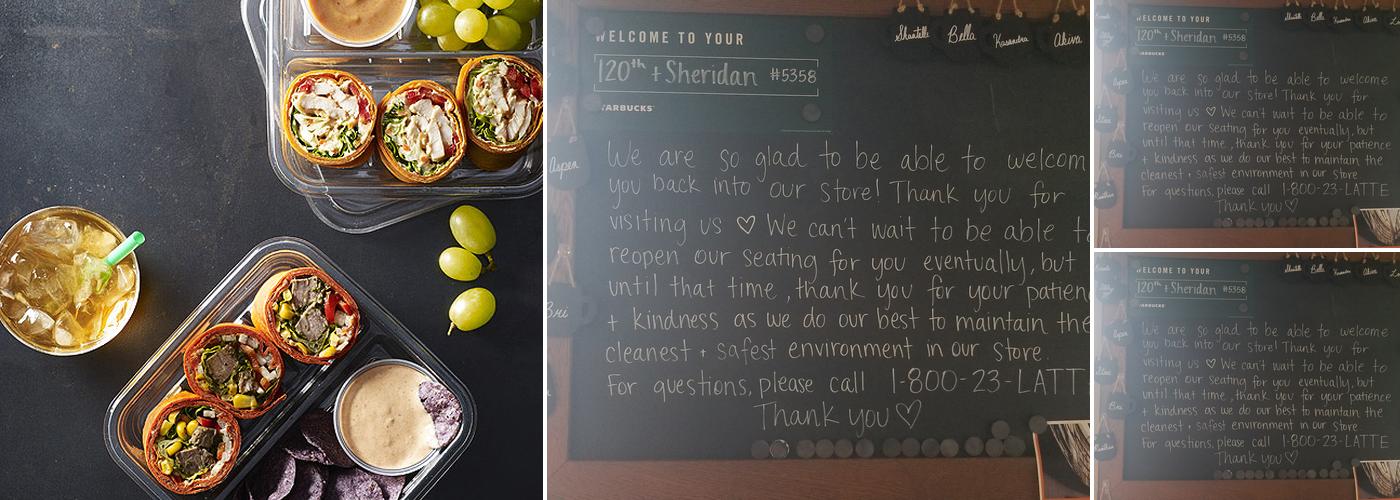 WELCOME TO YOUR
120th + Sheridan #5358
TARBUCKS
Shantelle Bella Kasandra Akiva
Aspen
Bri
We are so glad to be able to welcom
you back into our store! Thank you for
visiting us ♡ We can't wait to be able to
reopen our seating for you eventually, but
until that time, thank you for your patien
+ kindness as we do our best to maintain the
cleanest + safest environment in our store.
For questions, please call 1-800-23-LATT
Thank you ♡
WELCOME TO YOUR
120th + Sheridan #5358
STARBUCKS
Shantelle Bella Kasandra Akiva
Aspen
Bri
We are so glad to be able to welcome
you back into our store! Thank you for
visiting us ♡ We can't wait to be able to
reopen our seating for you eventually, but
until that time, thank you for your patience
+ kindness as we do our best to maintain the
cleanest + safest environment in our store
For questions, please call 1-800-23-LATTE
Thank you ♡
WELCOME TO YOUR
120th + Sheridan #5358
STARBUCKS
Shantelle Bella Kasandra Akiva
Aspen
Bri
We are so glad to be able to welcome
you back into our store! Thank you for
visiting us ♡ We can't wait to be able to
reopen our seating for you eventually, but
until that time, thank you for your patience
+ kindness as we do our best to maintain the
cleanest + safest environment in our store
For questions, please call 1-800-23-LATTE
Thank you ♡